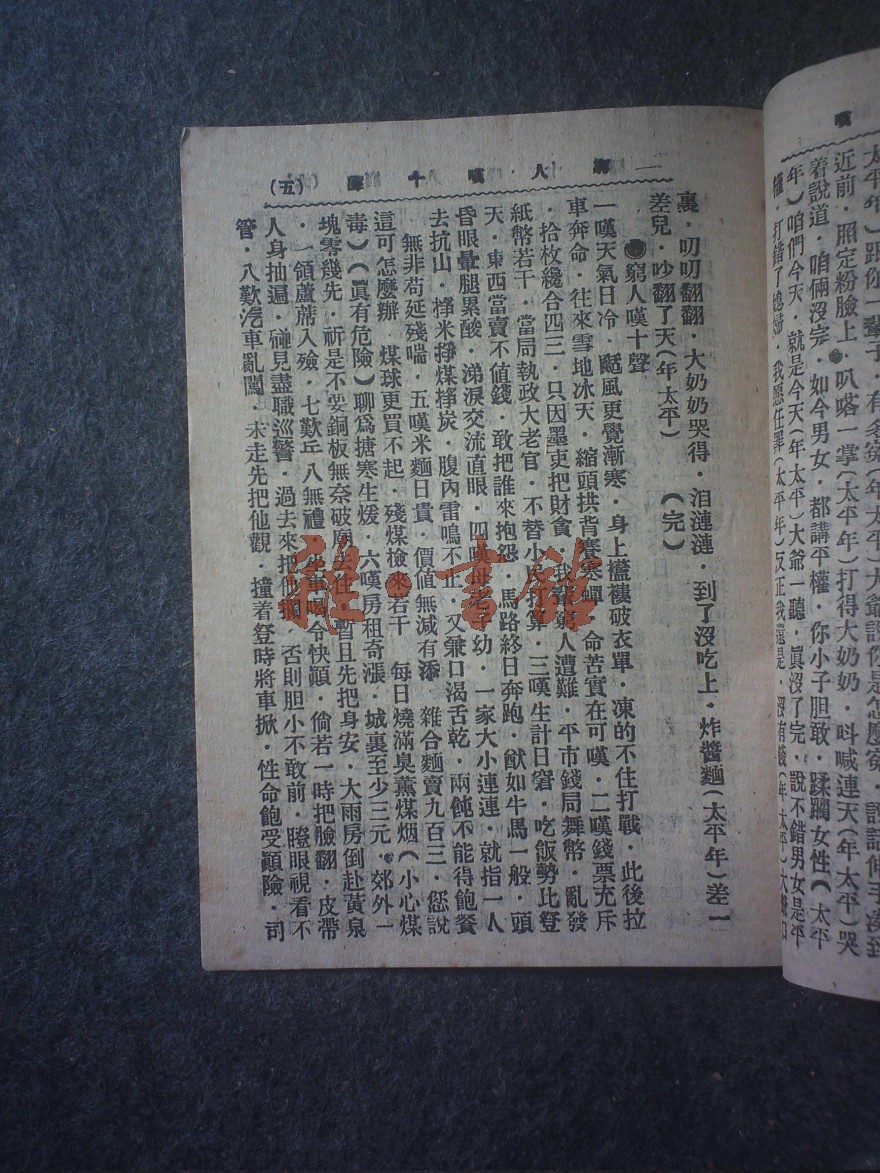 太平年)跟你一輩子·有多
近前·照定粉臉上·叭喀一掌(太平年)打得大奶奶·呌喊連天(年太平)哭
着說道·咱倆沒完·如今男女·都講平權·你小子胆敢·蹂躙女性(太平
年)咱們今天·就是今天(年太平)大爺一聽·眞沒了完·說不錯男女是平
權·打錯了媳婦·我愿任罪(太平年)反正我還是·沒有錢(年太平)大
嘆
窮人嘆十聲 (五)
裏·叨叨翻翻·大奶奶哭得·泪漣漣·到了沒吃上·炸醬麵(太平年)差一
差兒·吵翻了天(年太平) (完)
●窮人嘆十聲
一嘆天氣日冷·颳風更覺漸寒·身上襤褸破衣單·凍的不住打戰·此後拉
車奔命·往來雪地冰天·縮頭拱背賽寒蟬·命苦實在可嘆·二嘆錢票充斥
·拾枚纔合四三·只因墨吏把財貪·我輩窮人遭難·平市錢局舞幣·亂發
紙幣若干·當局執政大老官·不替小民打算·三嘆生計日窘·吃飯勢比登
天·東西當賣不值錢·敢把誰來抱怨·馬路終日奔跑·猷如牛馬一般·頭
昏眼暈腿累酸·涕淚交流直眼·四嘆母老子幼·一家大小連連·就指一人
去抗山·掙米掙煤掙炭·腹內雷鳴不止·又兼口渴舌乾·兩飩不能得飽餐
無非苟延殘喘·五嘆米麵日貴·價値無減有添·雜合麵賣九百三·您說
這可怎麼辦·煤球更買不起·殘煤檢來若干 每日燒滿臭薰煤烟(小心煤
毒)(眞有危險)聊爲搪寒生煖·六嘆房租奇漲·城裏至少三元·郊外一
塊零幾先·祈是不要銅板無奈破廟去住·暫且先把身安·大雨房倒赴黃泉
·一領蘆蓆入殮·七歎丘八無禮·坐車喝令快顚·倘若一時把臉翻·皮帶
人身抽遍·碰見盡職巡警·過去來把他攔·否則胆小不敢前·瞪眼視看不
管·八歎汽車亂闖·未走先把他觀·撞着登時將車掀·性命飽受顚險·司
雜·書館